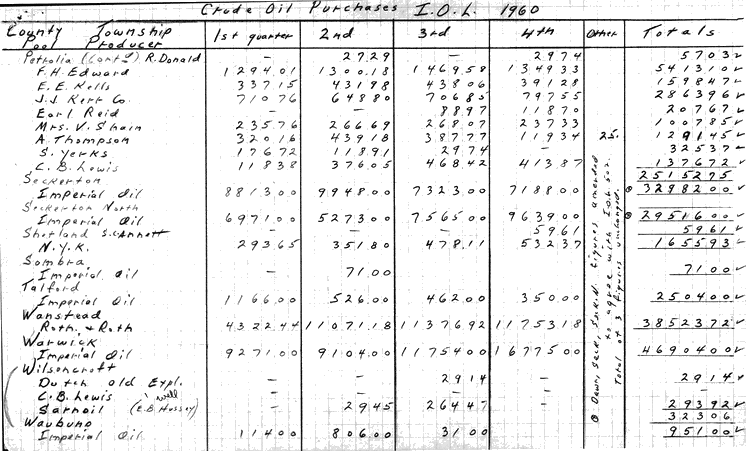 Crude Oil Purchases I.O.L. 1960
County Township
Pool Producer 1st quarter 2nd 3rd 4th Other Totals
Petrolia (Cont'd) R. Donald - 27.29 - 29.74 57.03
F.H. Edward 1294.01 1300.18 1469.58 1349.33 5413.10
E.E. Kells 337.15 431.98 438.06 391.28 1598.47
J.J. Kerr Co. 710.76 648.80 706.85 797.55 2863.96
Earl Reid - - 88.97 118.70 207.67
Mrs. V. Shain 235.76 266.69 268.07 237.33 1007.85
A. Thompson 320.16 439.18 387.77 119.34 25. 1291.45
S. Yerks 176.72 118.91 29.74 - 325.37
C.B. Lewis 118.38 376.05 468.42 413.87 1376.72
25152.75
Seckerton
Imperial Oil 8813.00 9948.00 7323.00 7188.00 32982.00
Seckerton North
Imperial Oil 6971.00 5273.00 7565.00 9639.00 29516.00
Shetland S. Annett - - - 59.61 59.61
N.Y.K. 293.65 351.80 478.11 532.37 1655.93
Sombra
Imperial Oil - 71.00 - - 71.00
Talford
Imperial Oil 1166.00 526.00 462.00 350.00 2504.00
Wanstead
Roth. & Roth 4322.44 11071.18 11376.92 11753.18 38523.72
Warwick
Imperial Oil 9271.00 9104.00 11754.00 16775.00 46904.00
Wilsoncroft
Dutch Old Expl. - - 29.14 - 29.14
C.B. Lewis well - - - - -
Sarnoil (E.B. Hussey) - 29.45 264.47 - 293.92
323.06
Waubuno
Imperial Oil 114.00 806.00 31.00 - 951.00
Figures amended
to agree with I.O.L.
Total of 3 figures unchanged.